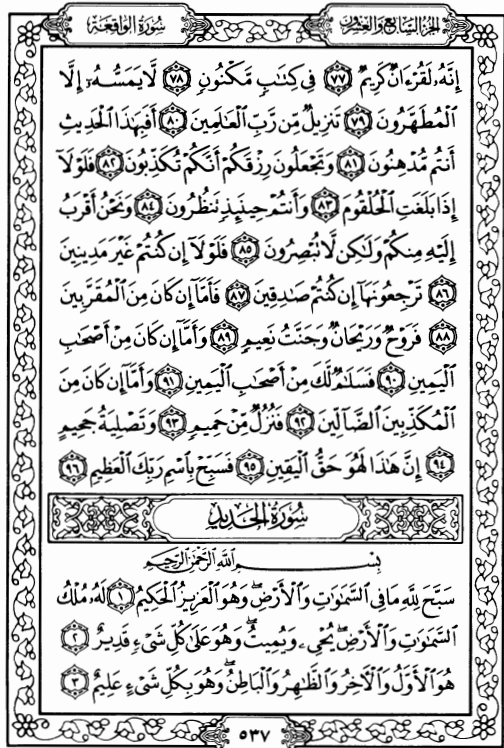 الجزء السابع والعشرون سورة الواقعة
إِنَّهُۥ لَقُرْءَانٌ كَرِيمٌ ٧٧ فِى كِتَٰبٍ مَّكْنُونٍ ٧٨ لَّا يَمَسُّهُۥٓ إِلَّا
ٱلْمُطَهَّرُونَ ٧٩ تَنزِيلٌ مِّن رَّبِّ ٱلْعَٰلَمِينَ ٨٠ أَفَبِهَٰذَا ٱلْحَدِيثِ
أَنتُم مُّدْهِنُونَ ٨١ وَتَجْعَلُونَ رِزْقَكُمْ أَنَّكُمْ تُكَذِّبُونَ ٨٢ فَلَوْلَآ
إِذَا بَلَغَتِ ٱلْحُلْقُومَ ٨٣ وَأَنتُمْ حِينَئِذٍ تَنظُرُونَ ٨٤ وَنَحْنُ أَقْرَبُ
إِلَيْهِ مِنكُمْ وَلَٰكِن لَّا تُبْصِرُونَ ٨٥ فَلَوْلَآ إِن كُنتُمْ غَيْرَ مَدِينِينَ
٨٦ تَرْجِعُونَهَآ إِن كُنتُمْ صَٰدِقِينَ ٨٧ فَأَمَّآ إِن كَانَ مِنَ ٱلْمُقَرَّبِينَ
٨٨ فَرَوْحٌ وَرَيْحَانٌ وَجَنَّتُ نَعِيمٍ ٨٩ وَأَمَّآ إِن كَانَ مِنْ أَصْحَٰبِ
ٱلْيَمِينِ ٩٠ فَسَلَٰمٌ لَّكَ مِنْ أَصْحَٰبِ ٱلْيَمِينِ ٩١ وَأَمَّآ إِن كَانَ مِنَ
ٱلْمُكَذِّبِينَ ٱلضَّآلِّينَ ٩٢ فَنُزُلٌ مِّنْ حَمِيمٍ ٩٣ وَتَصْلِيَةُ جَحِيمٍ
٩٤ إِنَّ هَٰذَا لَهُوَ حَقُّ ٱلْيَقِينِ ٩٥ فَسَبِّحْ بِٱسْمِ رَبِّكَ ٱلْعَظِيمِ ٩٦
سورة الحديد
بِسْمِ ٱللَّهِ ٱلرَّحْمَٰنِ ٱلرَّحِيمِ
سَبَّحَ لِلَّهِ مَا فِى ٱلسَّمَٰوَٰتِ وَٱلْأَرْضِ ۖ وَهُوَ ٱلْعَزِيزُ ٱلْحَكِيمُ ١ لَهُۥ مُلْكُ
ٱلسَّمَٰوَٰتِ وَٱلْأَرْضِ ۖ يُحْىِۦ وَيُمِيتُ ۖ وَهُوَ عَلَىٰ كُلِّ شَىْءٍ قَدِيرٌ ٢
هُوَ ٱلْأَوَّلُ وَٱلْءَاخِرُ وَٱلظَّٰهِرُ وَٱلْبَاطِنُ ۖ وَهُوَ بِكُلِّ شَىْءٍ عَلِيمٌ ٣
٥٣٧